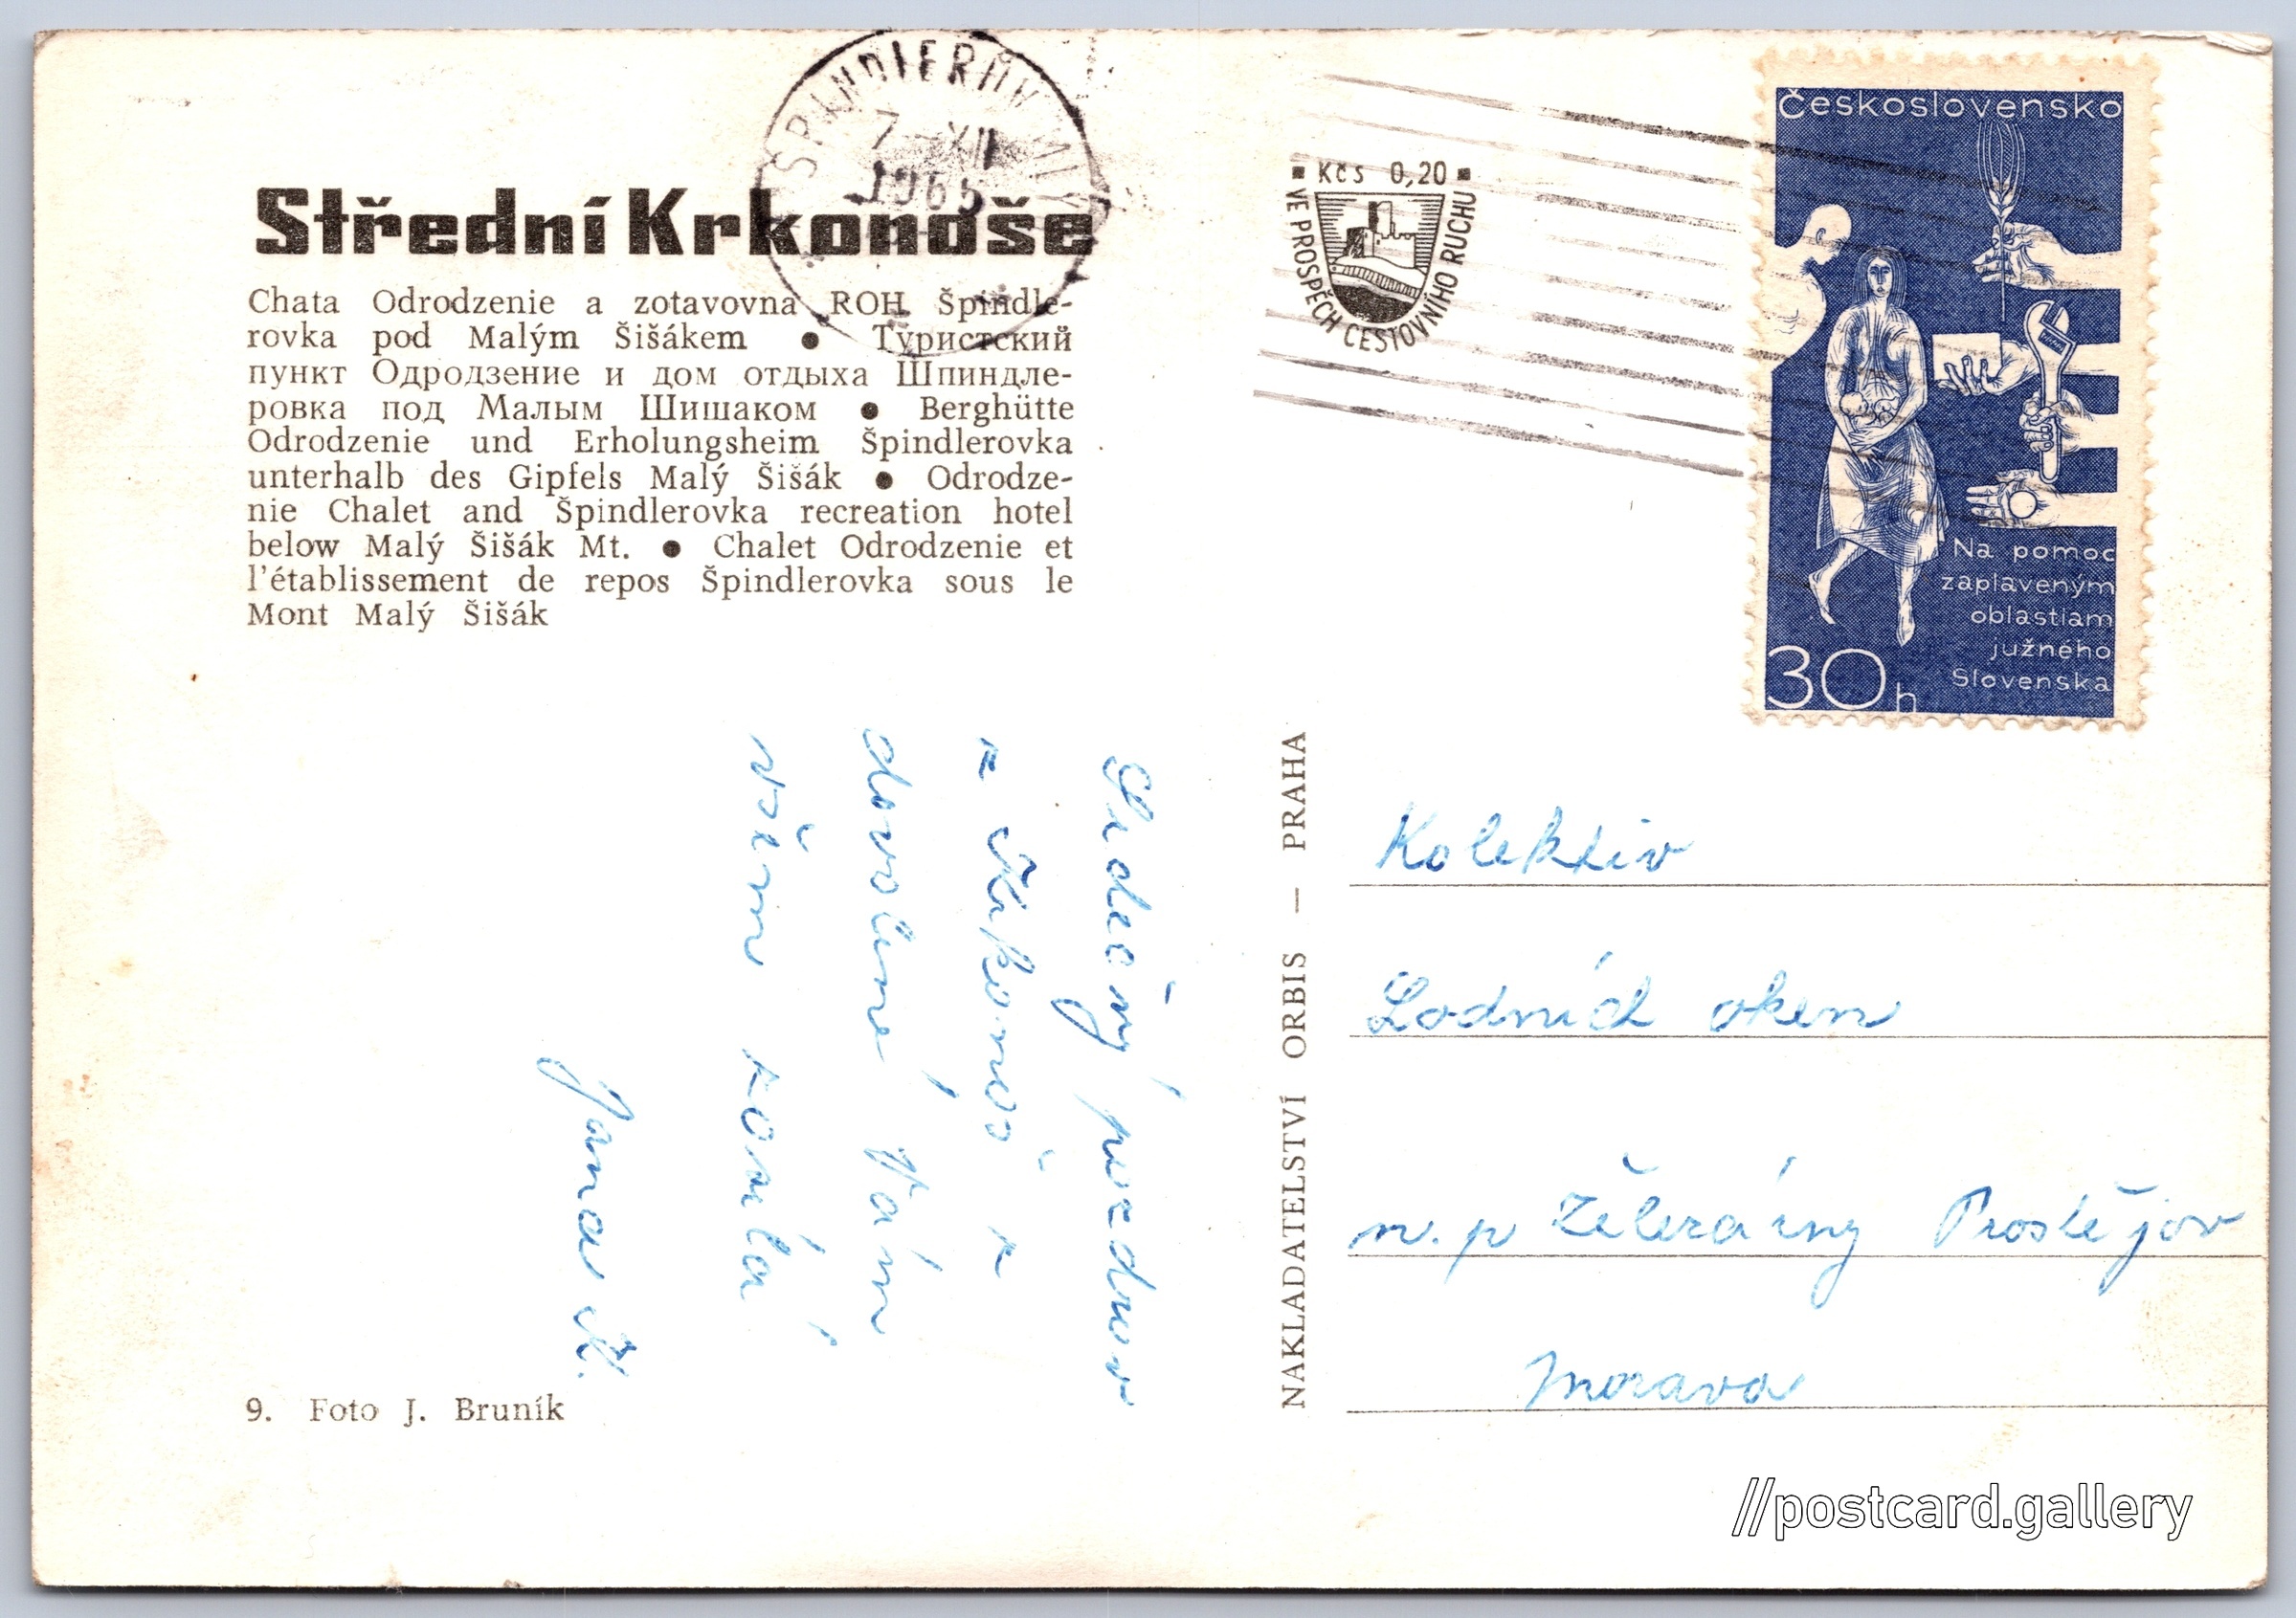 ŠPINDLERŮV MLÝN
7 XII
1965
Střední Krkonoše
Chata Odrodzenie a zotavovna ROH Špindle-
rovka pod Malým Šišákem ● Туристский
пункт Одродзение и дом отдыха Шпиндле-
ровка под Малым Шишаком ● Berghütte
Odrodzenie und Erholungsheim Špindlerovka
unterhalb des Gipfels Malý Šišák ● Odrodze-
nie Chalet and Špindlerovka recreation hotel
below Malý Šišák Mt. ● Chalet Odrodzenie et
l'établissement de repos Špindlerovka sous le
Mont Malý Šišák
Kčs 0,20
VE PROSPĚCH CESTOVNÍHO RUCHU
Československo
Na pomoc
zaplaveným
oblastiam
južného
Slovenska
30h
Srdečný pozdrav
z Krkonoš z
dovolené Vám
všem zasílá
Jana K.
9. Foto J. Bruník
NAKLADATELSTVÍ ORBIS – PRAHA
Kolektiv
Lodních oken
n.p Železárny Prostějov
Morava
//postcard.gallery